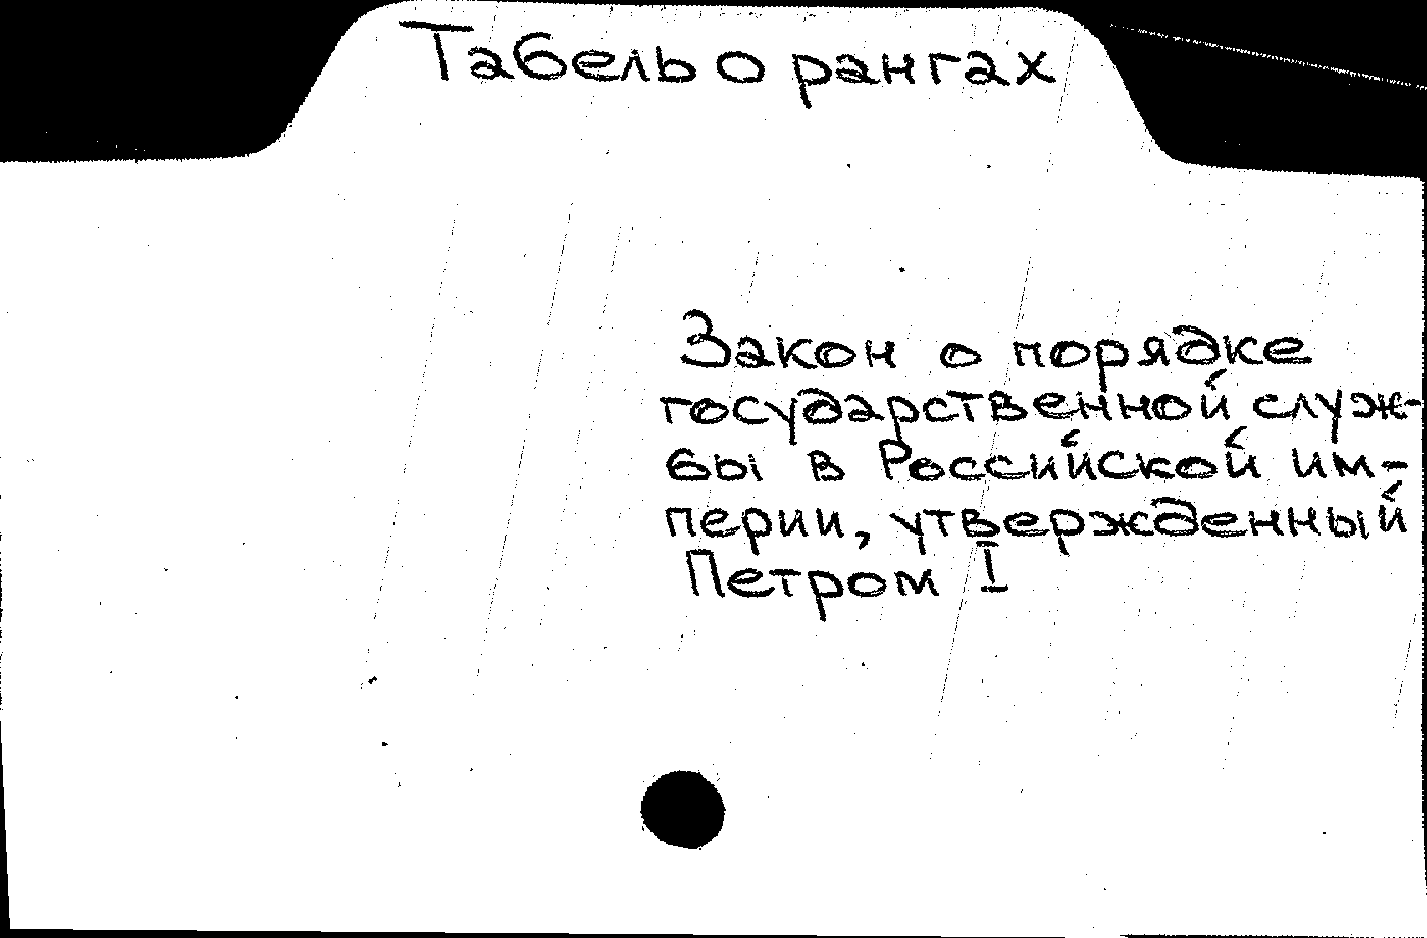 Табель о рангах
Закон о порядке
государственной служ-
бы в Российской им-
перии, утвержденный
Петром I